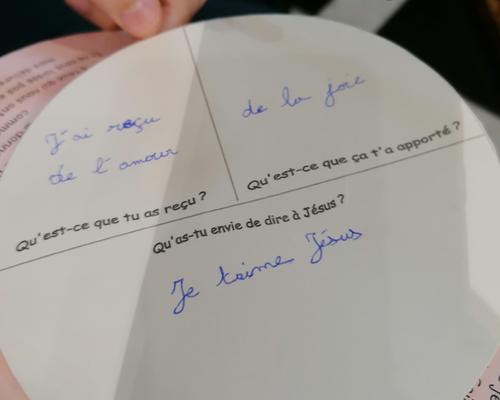 J'ai reçu
de l'amour
Qu'est-ce que tu as reçu ?
de la joie
Qu'est-ce que ça t'a apporté ?
Qu'as-tu envie de dire à Jésus ?
Je t'aime Jésus